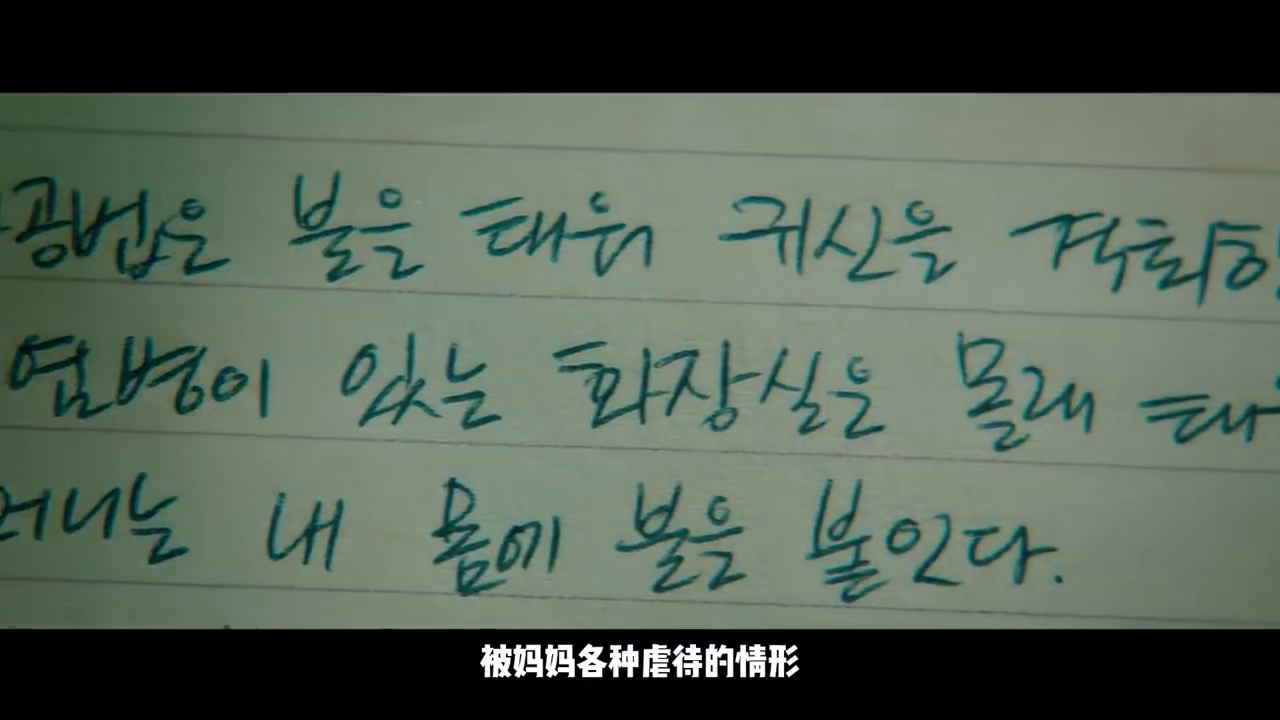 공법은 불을 태워 귀신을 격퇴하
염병이 있는 화장실은 몰래 태
머니는 내 몸에 불을 붙인다.
被妈妈各种虐待的情形